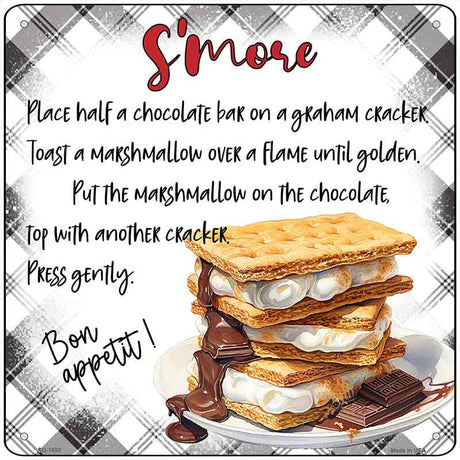 S'more
Place half a chocolate bar on a graham cracker.
Toast a marshmallow over a flame until golden.
Put the marshmallow on the chocolate,
top with another cracker.
Press gently.
Bon
appetit!
Made in USA